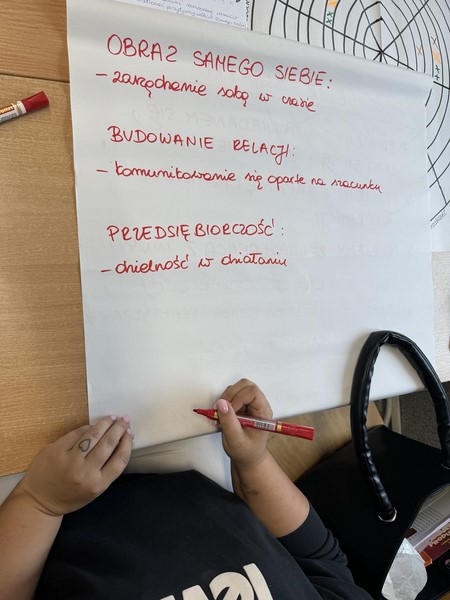 OBRAZ SAMEGO SIEBIE:
- zarządzanie sobą w czasie
BUDOWANIE RELACJI:
- komunikowanie się oparte na szacunku
PRZEDSIĘBIORCZOŚĆ:
- dzielność w działaniu